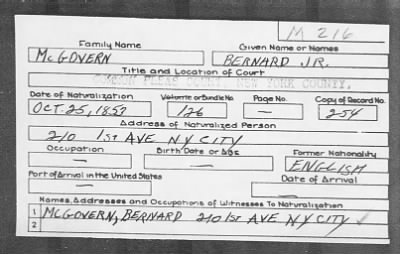 M 216
Family Name Given Name or Names
McGOVERN BERNARD JR.
Title and Location of Court
COMMON PLEAS COURT, NEW YORK COUNTY.
Date of Naturalization Volume or Bundle No. Page No. Copy of Record No.
OCT. 25, 1857 126 — 254
Address of Naturalized Person
210 1ST AVE NY CITY
Occupation Birth Date or Age Former Nationality
— — ENGLISH
Port of Arrival in the United States Date of Arrival
— —
Names, Addresses and Occupations of Witnesses To Naturalization
1 McGOVERN, BERNARD 210 1ST AVE NY CITY
2